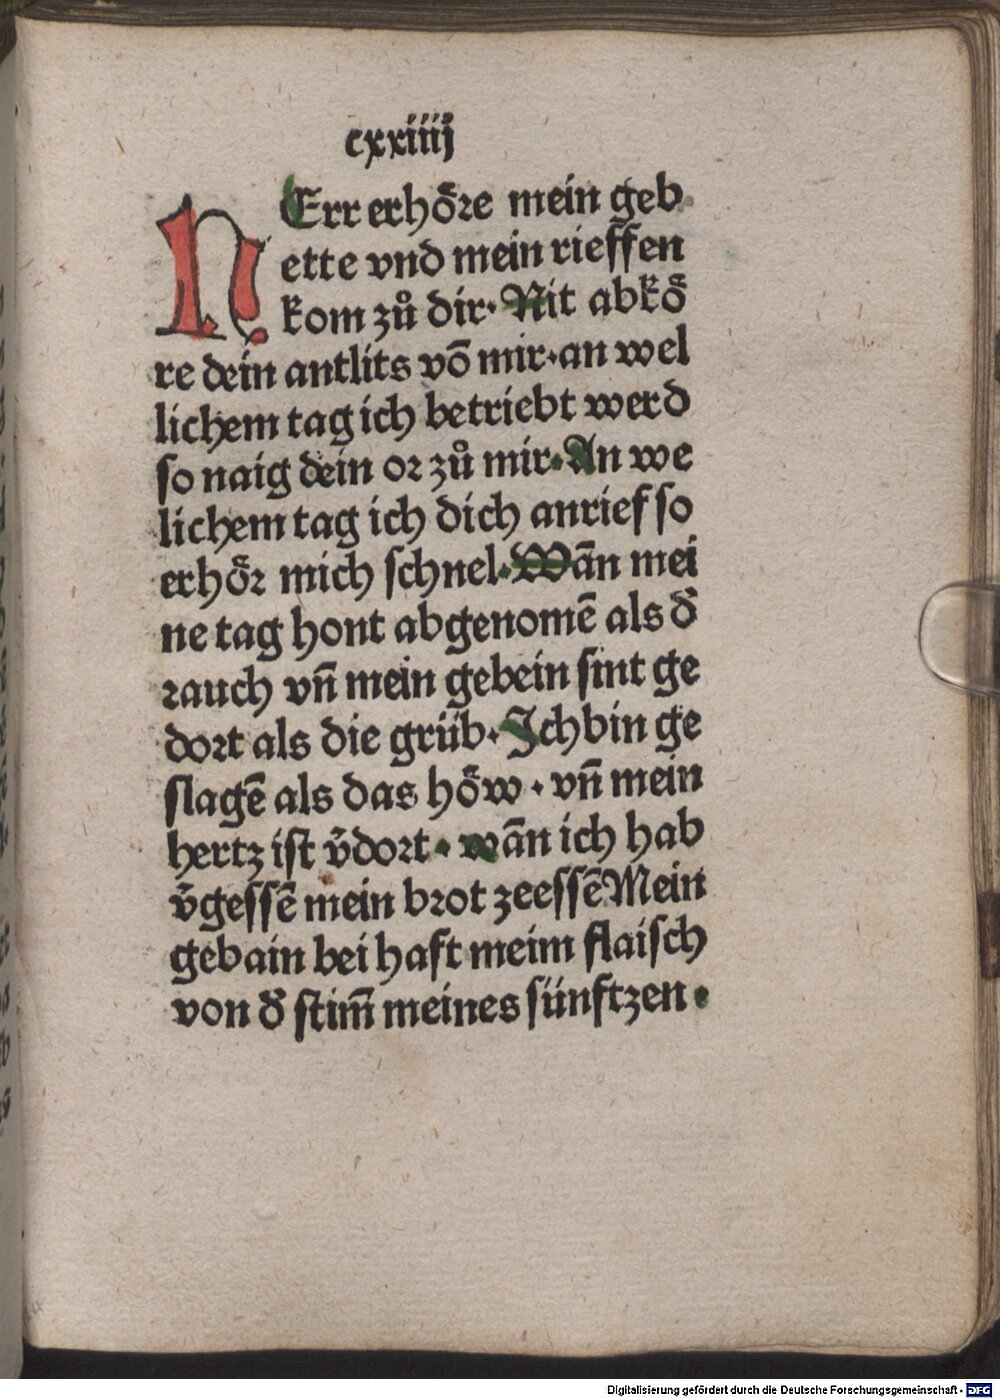 cxxiiij
HErr erhoͤre mein geb
ette vnd mein rieffen
kom zuͦ dir· Nit abkoͤ
re dein antlits vō mir·an wel
lichem tag ich betriebt werd
so naig dein or zuͦ mir·An we
lichem tag ich dich anrief so
erhoͤr mich schnel·Wān mei
ne tag hont abgenomē als đ
rauch vn̄ mein gebein sint ge
dort als die grüb·Ich bin ge
slagē als das hoͤw·vn̄ mein
hertz ist v̄dort·wān ich hab
v̄gessē mein brot zeessē Mein
gebain bei haft meim flaisch
von đ stim̄ meines sünftzen·
Digitalisierung gefördert durch die Deutsche Forschungsgemeinschaft - DFG